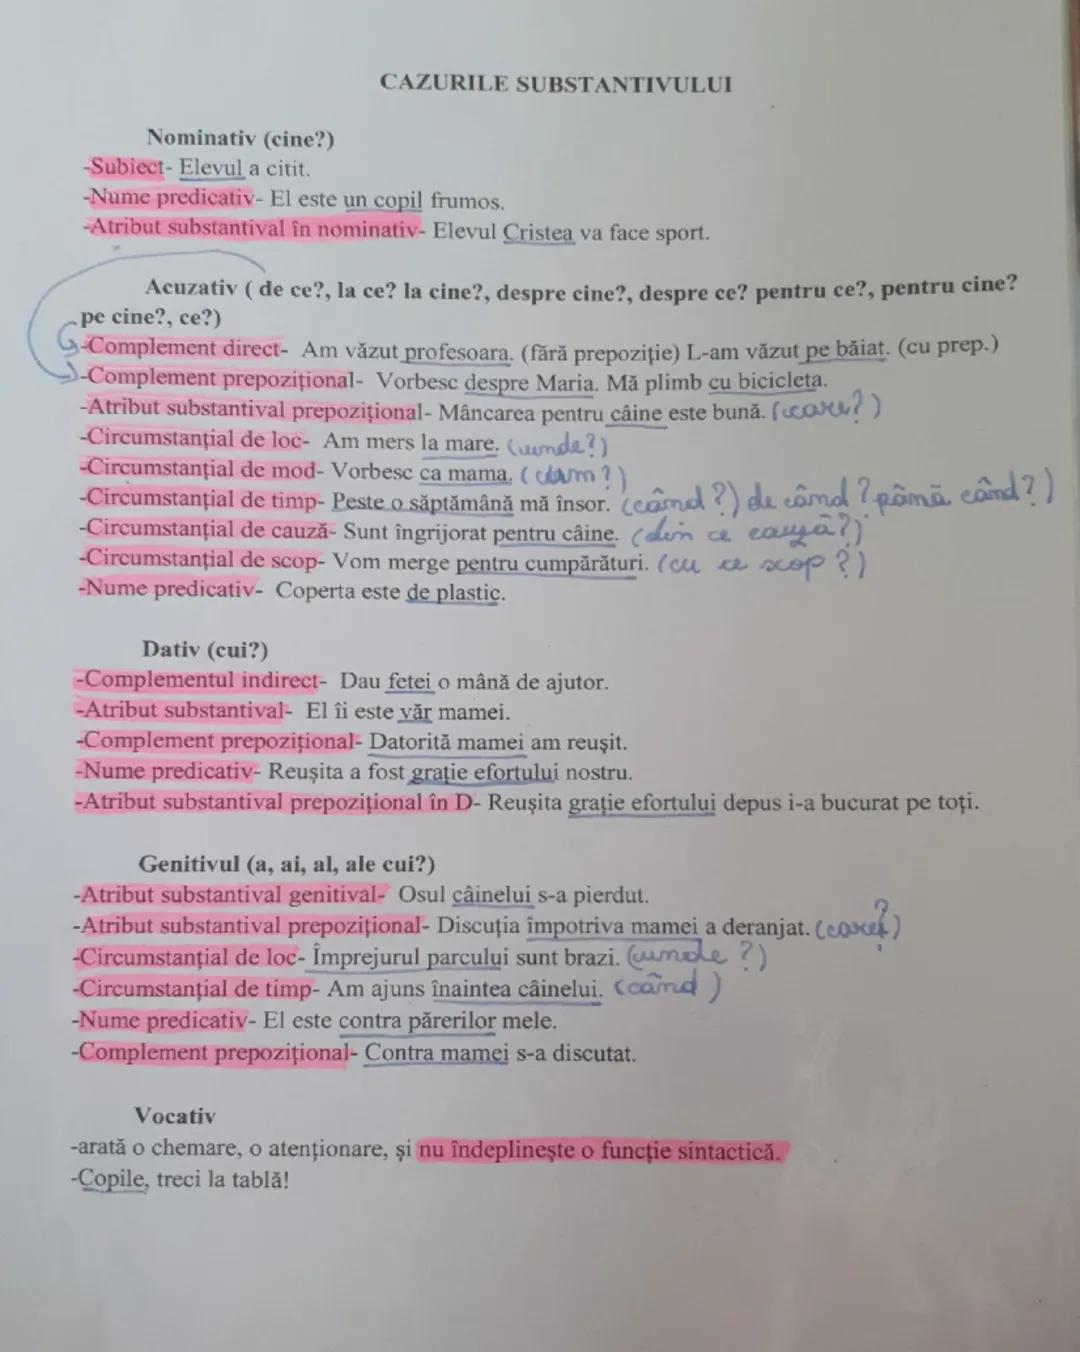 CAZURILE SUBSTANTIVULUI
Nominativ (cine?)
-Subiect- Elevul a citit.
-Nume predicativ- El este un copil frumos.
-Atribut substantival în nominativ- Elevul Cristea va face sport.
Acuzativ ( de ce?, la ce? la cine?, despre cine?, despre ce? pentru ce?, pentru cine?
pe cine?, ce?)
-Complement direct- Am văzut profesoara. (fără prepoziție) L-am văzut pe băiat. (cu prep.)
-Complement prepozițional- Vorbesc despre Maria. Mă plimb cu bicicleta.
-Atribut substantival prepozițional- Mâncarea pentru câine este bună. (care?)
-Circumstanțial de loc- Am mers la mare. (unde?)
-Circumstanțial de mod- Vorbesc ca mama. (cum?)
-Circumstanțial de timp- Peste o săptămână mă însor. (când?) de când? până când?)
-Circumstanțial de cauză- Sunt îngrijorat pentru câine. (din ce cauză?)
-Circumstanțial de scop- Vom merge pentru cumpărături. (cu ce scop?)
-Nume predicativ- Coperta este de plastic.
Dativ (cui?)
-Complementul indirect- Dau fetei o mână de ajutor.
-Atribut substantival- El îi este văr mamei.
-Complement prepozițional- Datorită mamei am reușit.
-Nume predicativ- Reușita a fost grație efortului nostru.
-Atribut substantival prepozițional în D- Reușita grație efortului depus i-a bucurat pe toți.
Genitivul (a, ai, al, ale cui?)
-Atribut substantival genitival- Osul câinelui s-a pierdut.
-Atribut substantival prepozițional- Discuția împotriva mamei a deranjat. (care?)
-Circumstanțial de loc- Împrejurul parcului sunt brazi. (unde?)
-Circumstanțial de timp- Am ajuns înaintea câinelui. (când)
-Nume predicativ- El este contra părerilor mele.
-Complement prepozițional- Contra mamei s-a discutat.
Vocativ
-arată o chemare, o atenționare, și nu îndeplinește o funcție sintactică.
-Copile, treci la tablă!